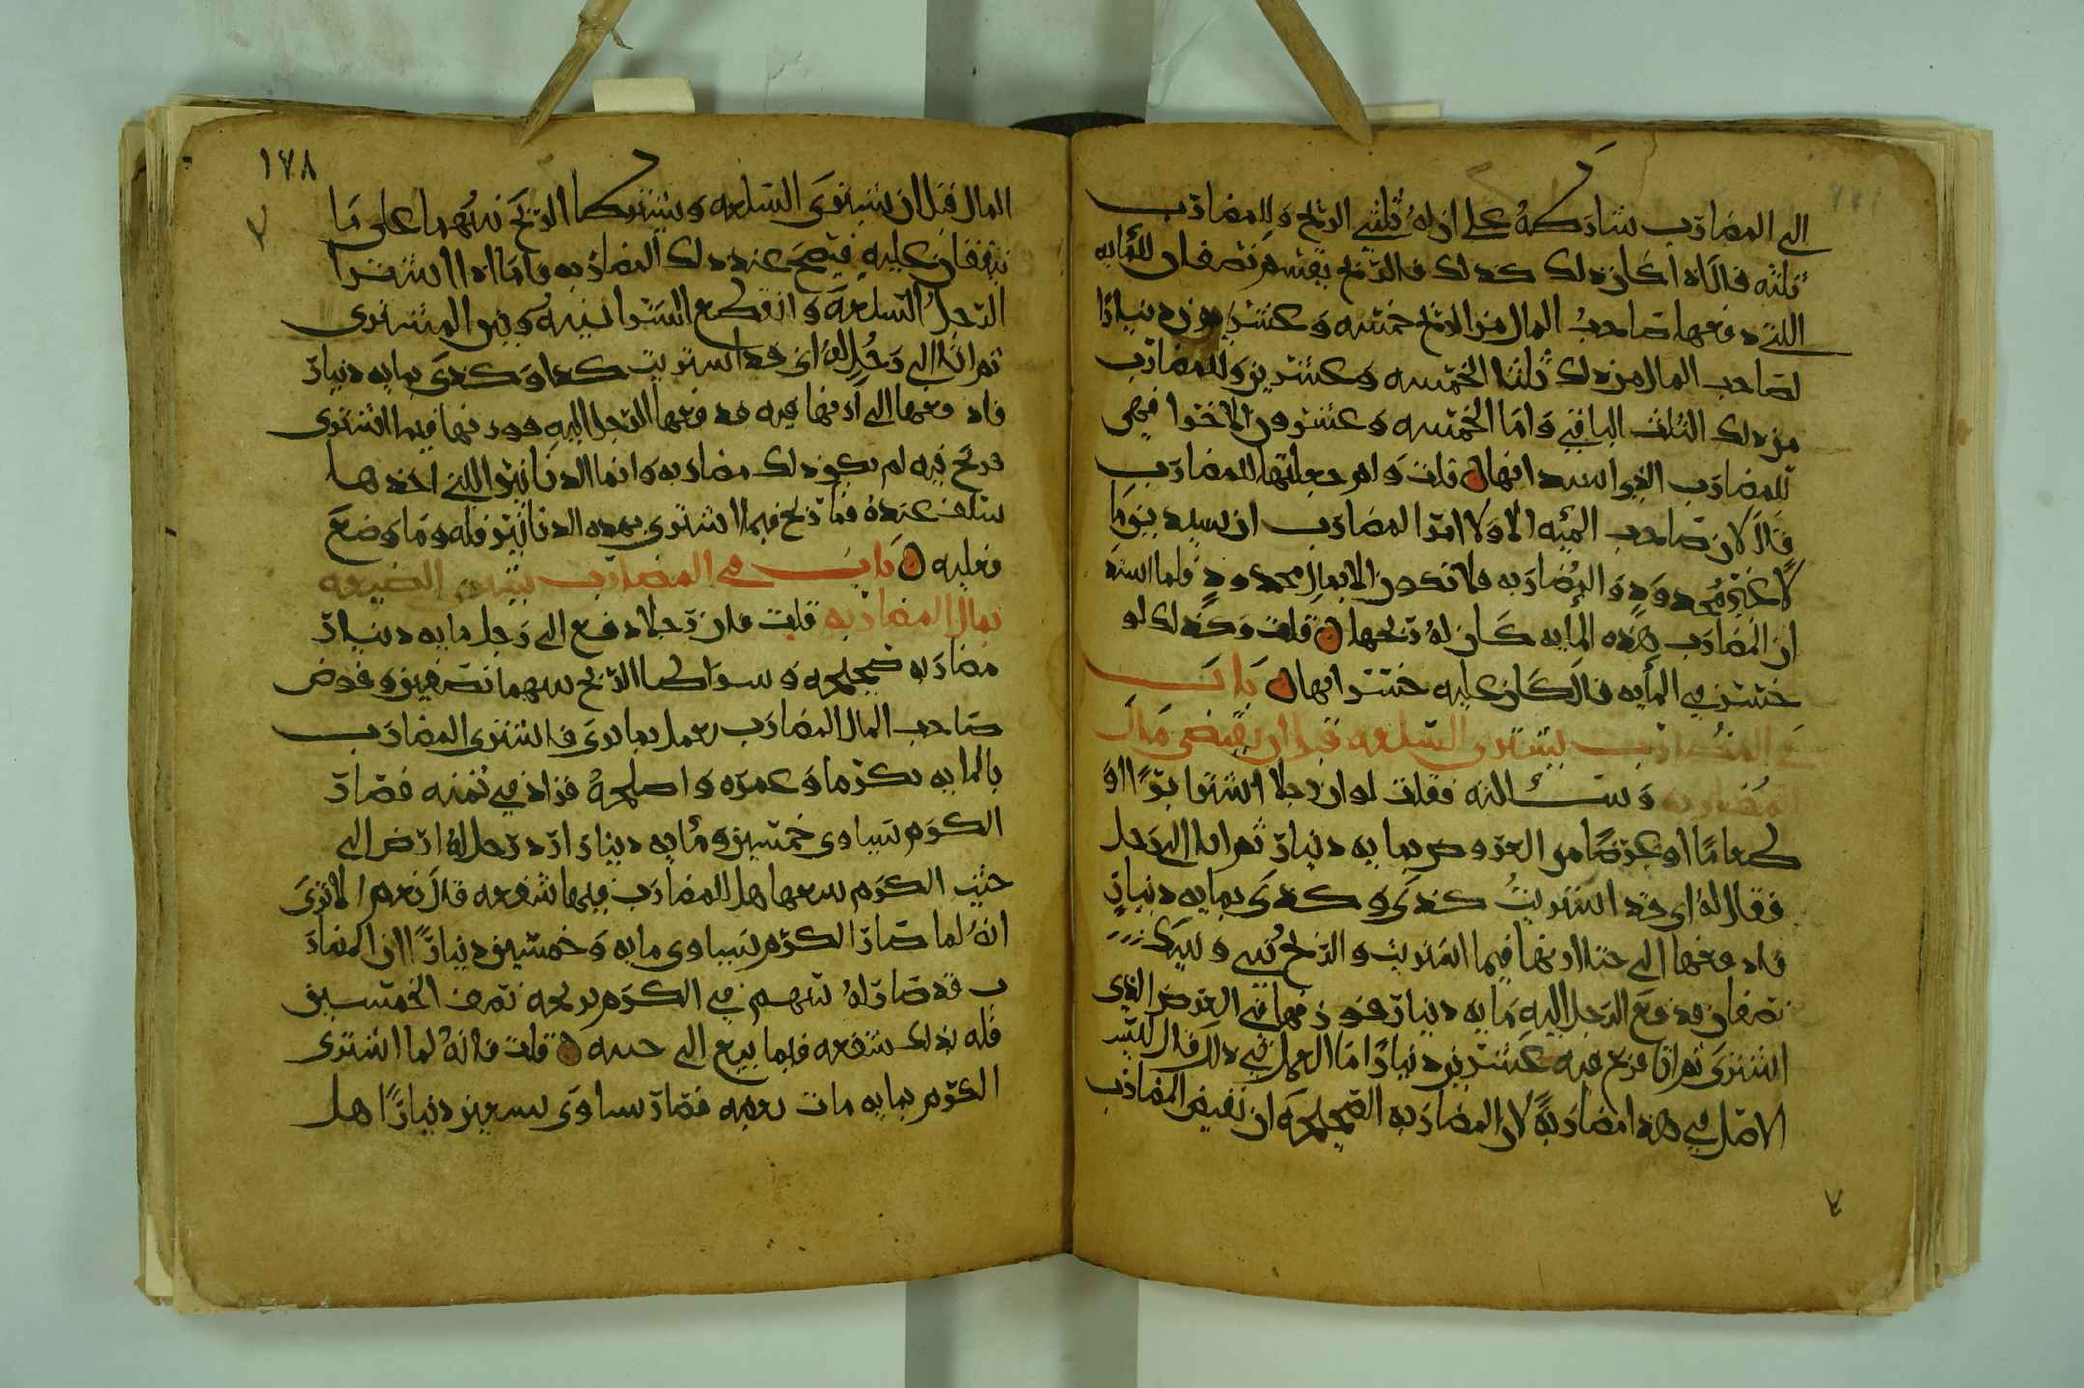 الى المضارب شاركه على ان له ثلثي الربح وللمضارب
ثلثه قال اذا كان ذلك كذلك فالربح يقسم نصفان للمايه
التي دفعها صاحب المال من الربح خمسه وعشرين دينارا
لصاحب المال من ذلك ثلثا الخمسه وعشرين وللمضارب
من ذلك الثلث الباقي واما الخمسه وعشرون الاخرا فهي
للمضارب الذي استدانها قلت ولم جعلتها للمضارب
قال لان صاحب الميه الاولا امر المضارب ان يستدين ما
لا غير محدود والمضاربه فلا تكون الا بمال محدود فلما استد
ان المضارب هذه المايه كان له ربحها قلت وكذلك لو
خسر في المايه قال كان عليه خسرانها باب
في المضارب يشتري السلعه قبل ان يقبض مال
المضاربه وسالته فقلت لو ان رجلا اشترا برا او
طعاما او عرضا من العروض بمايه دينار ثم اتا الى رجل
فقال له اي قد اشتريت كذى وكذى بمايه دينار
فادفعها الي حتا ازنها فيما اشتريت والربح بيني وبينك
نصفان فدفع الرجل اليه مايه دينار فوزنها في العرض الذي
اشترى ثم انا فربح فيه عشرين دينارا ما العمل في ذلك قال ليس
الاصل في هذا مضاربة لان المضاربه الصحيحه ان يقبض المضارب
١٧٨
المال قبل ان يشترى السلعه ويشتركا الربح بينهما على ما
يتفقان عليه فيصح عند ذلك المضاربه فاما اذا اشترا
الرجل السلعه وانقطع الشرا بينه وبين المشترى
ثم اتا الى رجل له اي قد اشتريت كذا وكذى بمايه دينار
فادفعها الي ازنها فيه فدفعها الرجل اليه فوزنها فيما اشترى
فربح فيه لم يكن ذلك مضاربه وانما الدنانير التي اخذها
سلف عنده فما ربح فيما اشترى بهذه الدنانير فله وما وضع
فعليه باب في المضارب يشترى الضيعه
بمال المضاربه قلت فان رجلا دفع الى رجل مايه دينار
مضاربه صحيحه وسراكا الربح بينهما نصفين وفوض
صاحب المال المضارب يعمل بما يرى فاشترى المضارب
بالمايه كرما وعمره واصلحه فزاد في ثمنه فصار
الكرم يساوى خمسين ومايه دينارا رد رجل له ارض الى
جنب الكرم بيعها هل للمضارب فيها شفعه قال نعم الا ترى
انه لما صار الكرم يساوى مايه وخمسين دينارا ان المضار
ب قد صار له سهم في الكرم بربحه نصف الخمسين
فله بذلك شفعه فيما بيع الى جنبه قلت فانه لما اشترى
الكرم بمايه مات بعضه فصار يساوى سبعين دينارا هل